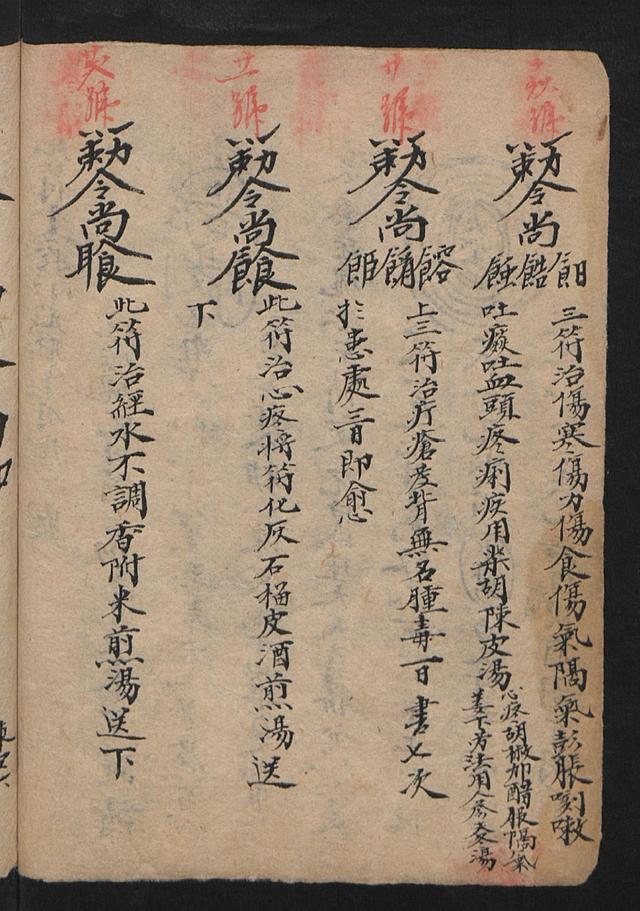 號
勅令尚
三符治傷寒傷力傷食傷氣隔氣彭脹咳嗽
吐痰吐血頭疼痢疾用柴胡陳皮湯
心疼胡椒加醋服隔氣
姜下勞法用人參麥冬湯
廿號
勅令尚
上三符治疔瘡發背無名腫毒一日書七次
於患處三日即愈
廿一號
勅令尚
此符治心疼將符化灰石榴皮酒煎湯送
下
號
勅令尚
此符治經水不調香附米煎湯送下